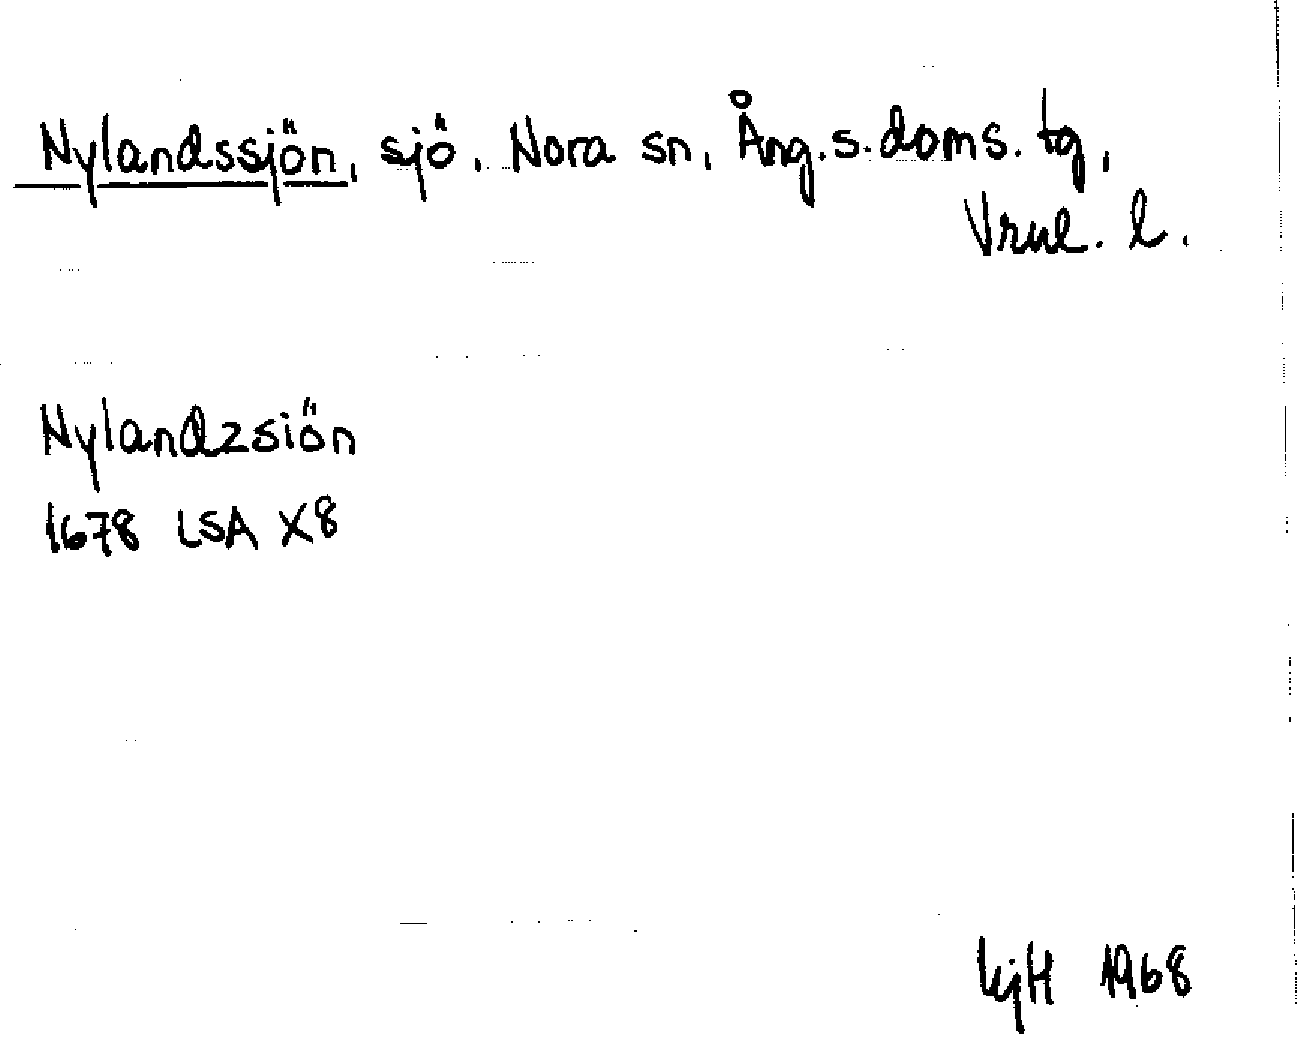 Nylandssjön, sjö. Nora sn, Ång.s.doms.tg,
Vrnl. l.
Nylandzsiön
1678 LSA X8
KjH 1968